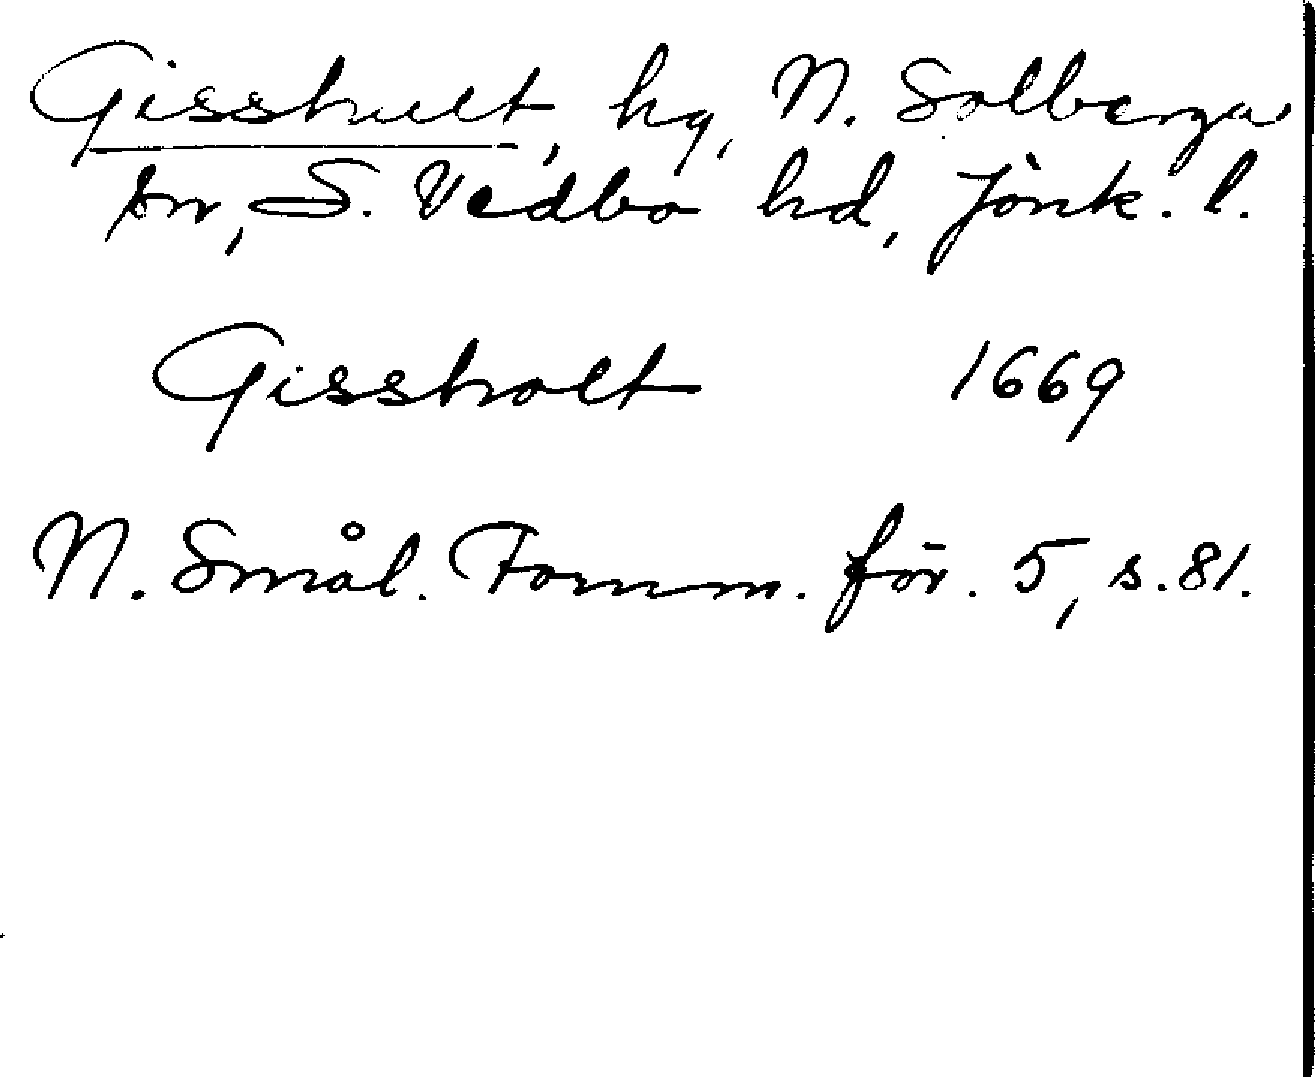 Gisshult, hg, N. Solberga
sn, S. Vedbo hd, Jönk. l.
Gissholt 1669
N. Smål. Fornm. för. 5, s. 81.